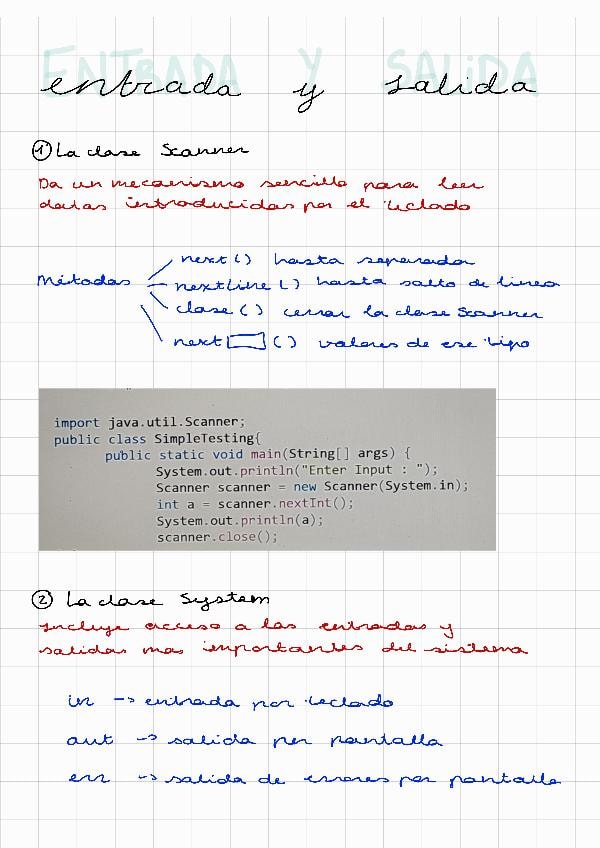 ENTRADA Y SALIDA
entrada y salida
① La clase Scanner
Da un mecanismo sencillo para leer
datos introducidos por el teclado
Métodos
next() hasta separador
nextline () hasta salto de linea
close() cerrar la clase Scanner
next ▭ () valores de ese tipo
import java.util.Scanner;
public class SimpleTesting{
public static void main(String[] args) {
System.out.println("Enter Input : ");
Scanner scanner = new Scanner(System.in);
int a = scanner.nextInt();
System.out.println(a);
scanner.close();
② La clase System
Incluye acceso a las entradas y
salidas mas importantes del sistema
in -> entrada por teclado
out -> salida por pantalla
err -> salida de errores por pantalla